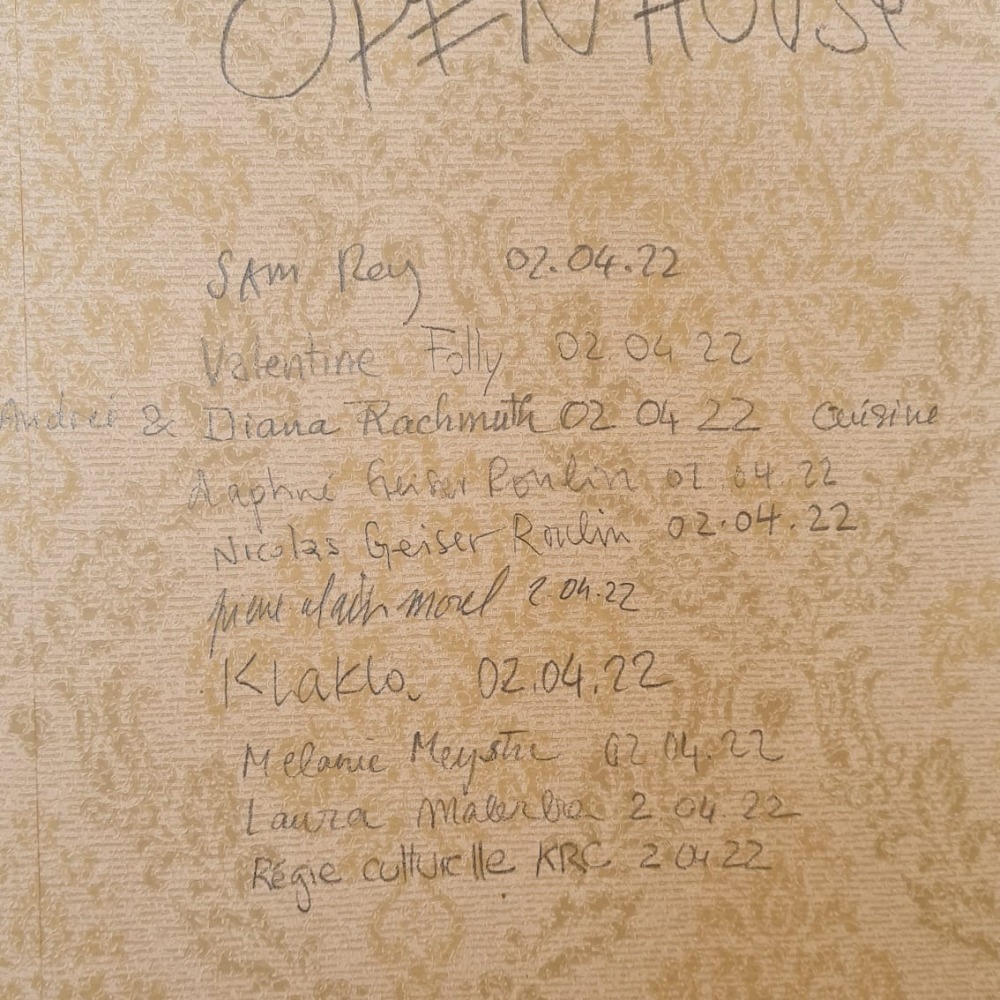 OPEN HOUSE
SAM Rey 02.04.22
Valentine Folly 02 04 22
Andrei & Diana Rachmuth 02 04 22 Cuisine
Daphné Geiser Roulin 02 04.22
Nicolas Geiser Roulin 02.04.22
pierre alain morel 2 04.22
Klaklo 02.04.22
Melanie Meystre 02 04.22
Laura Malerba 2 04 22
Régie culturelle KRC 2 04 22